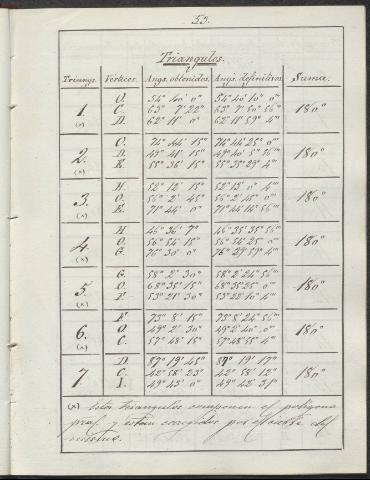 53.
Triangulos.
Triangs. Vértices. Angs. obtenidos. Angs. definitivos. Suma.
O. 54° 40' 0" 54° 40' 10" 0'"
1. C. 63° 7' 22" 63° 7' 50" 56'" 180°
(x) D. 62° 11' 0" 62° 11' 59" 4'"
O. 74° 44' 15" 74° 44' 25" 0'"
2. D. 49° 41' 15" 180°
(x) E. 55° 36' 15" 55° 35' 29" 4'"
H. 52° 12' 15" 52° 13' 0" 4'"
3. O. 56° 2' 45" 56° 2' 45" 0'" 180°
(x) E. 71° 44' 0" 71° 44' 14" 56'"
H. 46° 36' 7" 46° 35' 35" 56'"
4. O. 56° 54' 15" 56° 54' 25" 0'" 180°
(x) G. 76° 30' 0" 76° 29' 59" 4'"
G. 58° 2' 30" 58° 2' 24" 56'"
5. O. 68° 35' 15" 68° 35' 25" 0'" 180°
(x) F. 53° 21' 30" 53° 22' 10" 4'"
F. 73° 8' 15" 73° 8' 24" 56'"
6. O. 49° 2' 30" 49° 2' 40" 0'" 180°
(x) C. 57° 48' 15" 57° 48' 55" 4'"
D. 87° 19' 45" 87° 19' 17"
7. C. 42° 58' 23" 42° 58' 12" 180°
I. 49° 43' 0" 49° 42' 31"
(x) Estos triangulos componen el poligono
y estan corregidos por